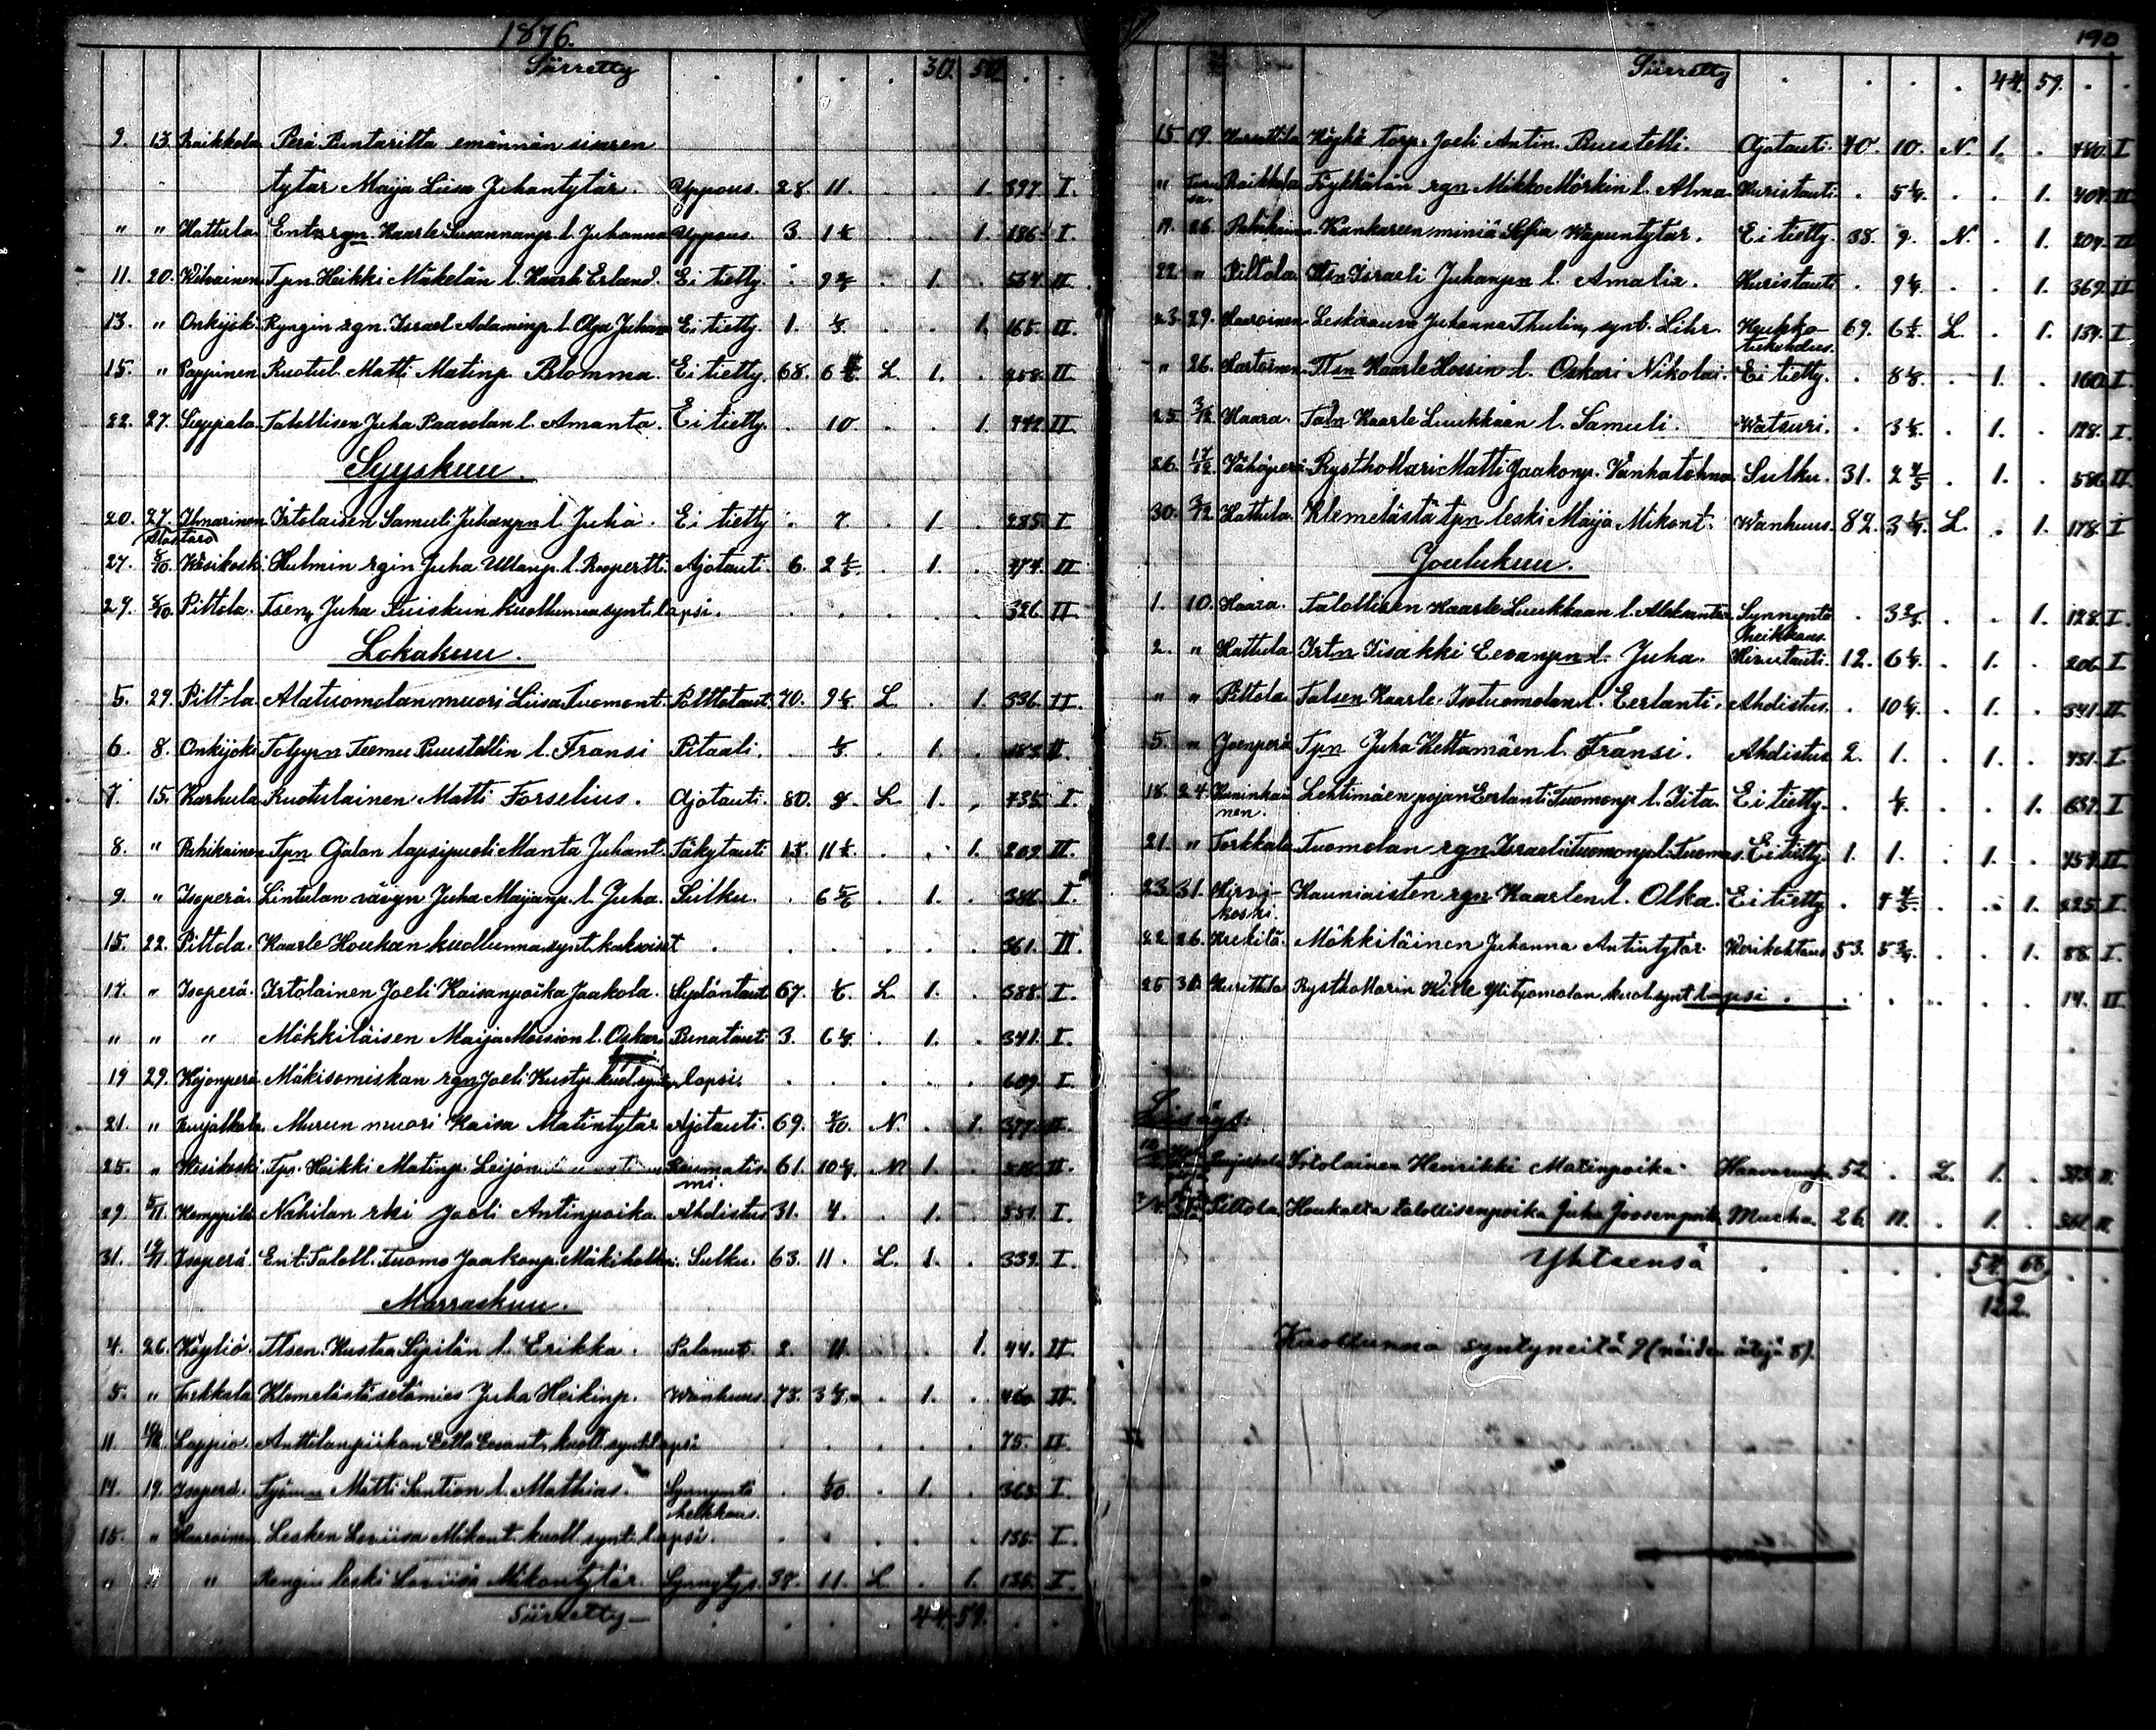 1876.
Siirretty . . . . 30. 50. . .
9. 13. Raikkola Perä Pentariita emännän sisaren
tytär Maija Liisa Juhantytär. Uppous. 28. 11. . . 1. 397. I.
" " Hattula. Ent. rgn. Kaarle Susannanp. l. Juhanna Uppous. 3. 1 . . 1. 186. I.
11. 20. Wihainen Tpn. Heikki Mäkelän l. Kaarle Erland. Ei tietty. . 9 . 1. . 564. II.
13. " Onkijoki Ryngin rgn. Israel Adaminp. l. Olga Juhana Ei tietty. 1. . . 1. 165. II.
15. " Pappinen Ruotul. Matti Matinp. Blomma. Ei tietty. 68. 6 L. 1. . 258. II
22. 27. Seppala. Talollisen Juha Paavolan l. Amanta. Ei tietty. . 10. . . 1. 442. II.
Syyskuu.
20. 27. Ilmarinen Irtolaisen Samuli Juhanpn l. Juha. Ei tietty . 7. . 1. . 285. I
Alastaro
27. 8/10. Wesikoski. Hulmin rgin Juha Ullanp. l. Roopertti. Ajotauti. 6. 2 . 1. . 474. II
29. 8/10. Piltola. Tsen, Juha Suiskun kuollunna synt. lapsi. . . . . . 326. II
Lokakuu.
5. 29. Piltola. Alatuomolan muori Liisa Tuomont. Polttotaut. 70. 9 L. . 1. 336. II.
6. 8. Onkijoki Tolppn Teemu Puustellin l. Fransi Pitaali. . . 1. . 183. II.
7. 15. Karhula Ruotulainen Matti Forselius. Ajotauti. 80. 8. L. 1. . 735. I.
8. " Pahikainen Tpn Ojalan lapsipuoli Manta Juhant. Täkytauti 13. 11 . . 1. 209. II.
9. " Isoperä. Lintulan vävyn Juha Maijanp. l. Juha. Sulku. . 6 5/6 . 1. . 386. I.
15. 22. Piltola. Kaarle Houkan kuollunna synt. kaksoiset . . . . . . 361. II.
17. " Isoperä. Irtolainen Joeli Kaisanpoika Jaakola. Sydäntaut. 67. L. 1. . 388. I.
" " " Mökkiläisen Maija Moision l. Oskar. Punatauti. 3. 6 . 1. . 341. I.
19 29. Kojonperä Mäkisomiskan rgn Joeli Kustp. kuol. synt. lapsi. . . . . . 609. I.
21. " Kuijalkola. Mureen muori Kaisa Matintytär Ajotauti. 69. N. . 1. 377. II.
25. " Wesikoski. Tpn. Heikki Matinp. Leijon Reumatis- 61. 10 N. 1. . II.
mi.
29. 5/11. Kemppilä Nahilan rki Joeli Antinpoika. Ahdistus 31. 4. . 1. . 551. I.
31. 19/11 Isoperä. Ent. Taloll. Tuomo Jaakonp. Mäkiholkki. Sulku. 63. 11. L. 1. . 339. I.
Marraskuu.
4. 26. Köyliö. Tlsen. Kustaa Sipilän l. Erikka. Palanut. 2. 11. . . 1. 44. II.
5. " Torkkala Klemelästä setämies Juha Heikinp. Wanhuus. 73. 3 . 1. . II.
11. Loppio. Anttilan piikan Eella Eevant. kuoll. synt. lapsi . . . . . 75. II.
14. 19. Isoperä. Matti Santion l. Mathias. Synnyntö . . 1. . 363. I.
heikkous.
15. " Haaroinen. Lesken Loviisa Mikont. kuoll. synt. lapsi. . . . . . 136. I.
" " " Rengin leski Loviisa Mikontytär. Synnytys. 38. 11. L. . 1. 136. I.
Siirretty 44. 59. . .
190
Siirretty . . . . 44. 59. . .
15. 19. Kurittila Köykä torp. Joeli Antin. Puustelli. Ajotauti. 40. 10. N. 1. . 480. I
" Raikkola Töykkälän rgn Mikko Mörkin l. Alma. Kuristauti. . 5 . . 1. 404. II
17. 26. Pahikainen. Kankareen miniä Sofia Wapuntytär. Ei tietty. 38. 9. N. . 1. 204. II
22. " Piltola. Itsn Israeli Juhanpn l. Amalia. Kuristauti . 9 . . 1. 369. II
23. 29. Haaroinen Leskirouva Juhanna Thulin, synt. Lihr. Keuhko- 69. 6 L. . 1. 134. I
tukehdus.
" 26. Kartoinen Tlsn Kaarle Hossin l. Oskari Nikolai. Ei tietty. . 8 . 1. . 160. I.
25. 3/12 Haara. Taln Kaarle Luukkaan l. Samuli. Watsuri. . 3 . 1. . 128. I.
26. 17/12 Vähäperä Rysthollari Matti Jaakonp. Vanhatahna Sulku. 31. 2 4/5 . 1. . 580. II.
30. 3/12 Hattula. Klemelästä tpn leski Maija Mikont. Wanhuus. 82. 3 L. . 1. 178. I
Joulukuu.
1. 10. Haara. Talollisen Kaarle Luukkaan l. Aleksantra Synnyntö . 3 . . 1. 128. I.
heikkous.
2. " Hattula Irtn Iisakki Eevanpn l. Juha. Hivutauti. 12. 6 . 1. . 206. I
" " Piltola Talsen Kaarle Isotuomolan l. Eerlanti. Ahdistus. . 10 . 1. . 341. II
5. " Joenperä Tpn Juha Kettamäen l. Fransi. Ahdistus 2. 1. . 1. . 451. I.
18. 24. Huninkai- Lehtimäen pojan Eerlanti Tuomonp. l. Iita. Ei tietty. . . . 1. 637. I
nen.
21. " Torkkala Tuomolan rgn. Israeli Tuomonp. l. Tuomas. Ei tietty. 1. 1. . 1. . 454. II
23. 31. Hirvi- Kauniaisten rgn Kaarlen l. Olka. Ei tietty. . 7 4/5. . . 1. 225. I.
koski.
22. 26. Mökkiläinen Juhanna Antintytär Werikohtaus 53. 5 . . 1. 88. I.
25 31. Kurittula Rysthollarin Kille Ylitjomolan kuol. synt. lapsi . . . . . . 14. II
Lisäys:
Irtolainen Henrikki Matinpoika. 52. . L. 1. . 373. II.
Piltola. Houkalta talollisenpoika Juha Joosenpoik. Murha. 26. 11. . 1. . 361. II.
Yhteensä . . . . 54. 68. . .
122.
Kuollunna syntyneitä 9 (näiden äitejä 8).